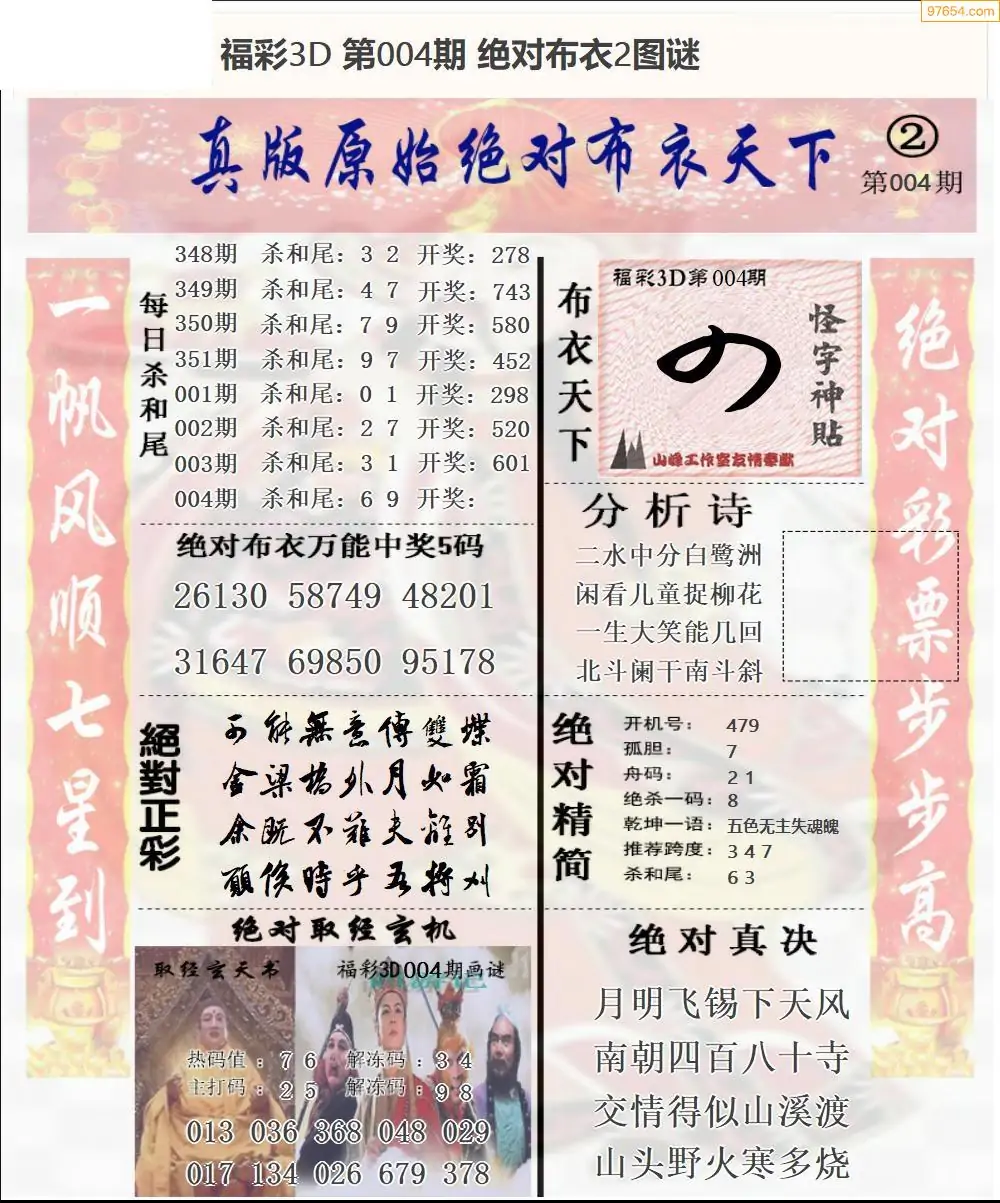 97654.com
福彩3D 第004期 绝对布衣2图谜
真版原始绝对布衣天下
②
第004期
一帆风顺七星到
每日杀和尾
348期 杀和尾：3 2 开奖：278
349期 杀和尾：4 7 开奖：743
350期 杀和尾：7 9 开奖：580
351期 杀和尾：9 7 开奖：452
001期 杀和尾：0 1 开奖：298
002期 杀和尾：2 7 开奖：520
003期 杀和尾：3 1 开奖：601
004期 杀和尾：6 9 开奖：
绝对布衣万能中奖5码
26130 58749 48201
31647 69850 95178
絕對正彩
不能無意傳雙蝶
金梁橋外月如霜
余既不難夫離别
願俟時乎吾将刈
绝对取经玄机
取经玄天书
福彩3D004期画谜
热码值：7 6 解冻码：3 4
主打码：2 5 解冻码：9 8
013 036 368 048 029
017 134 026 679 378
布衣天下
福彩3D第004期
怪字神貼
山峰工作室友情奉献
分析诗
二水中分白鹭洲
闲看儿童捉柳花
一生大笑能几回
北斗阑干南斗斜
绝对精简
开机号： 479
孤胆： 7
舟码： 2 1
绝杀一码：8
乾坤一语：五色无主失魂魄
推荐跨度：3 4 7
杀和尾： 6 3
绝对真决
月明飞锡下天风
南朝四百八十寺
交情得似山溪渡
山头野火寒多烧
绝对彩票步步高